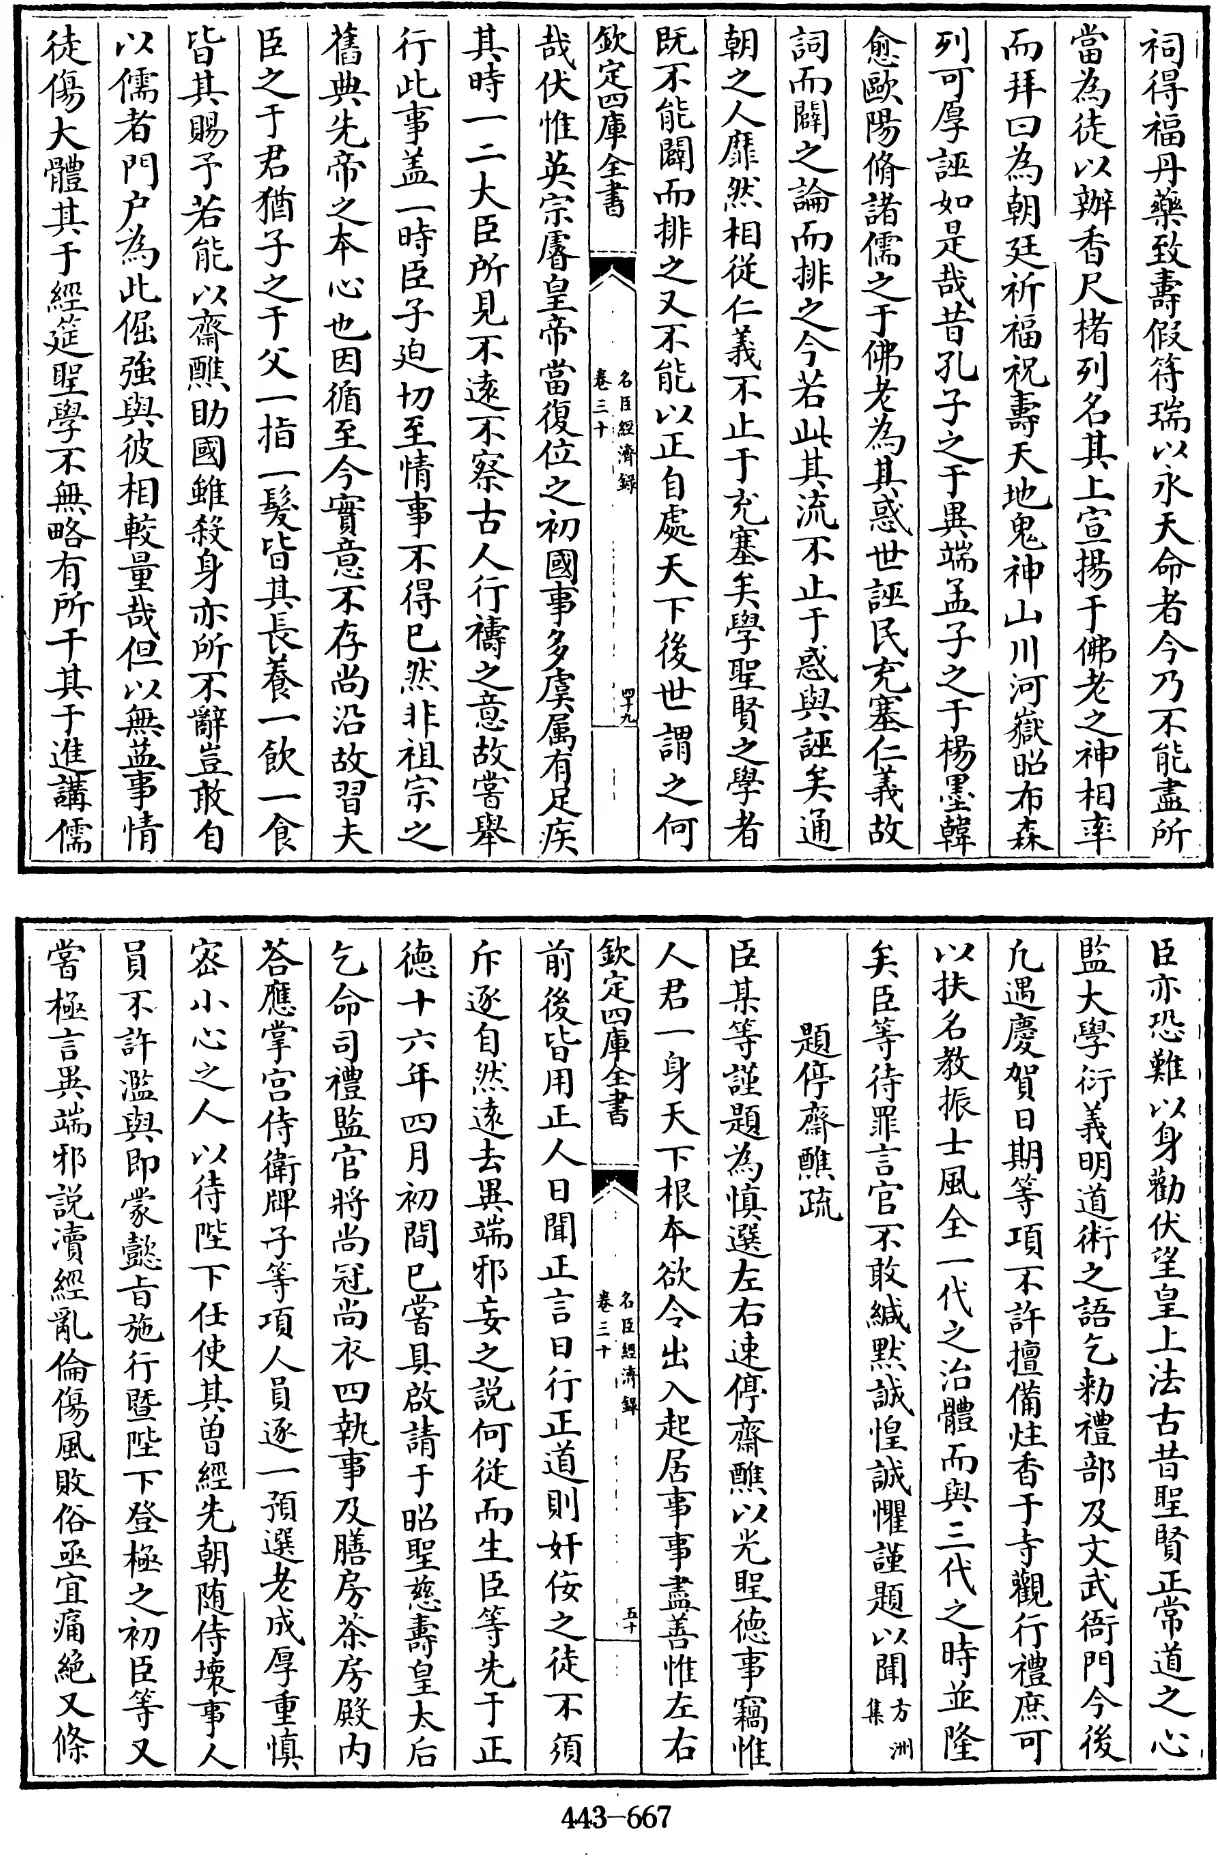 祠得福丹藥致壽假符瑞以永天命者今乃不能盡所
當為徒以辦香尺楮列名其上宣揚于佛老之神相率
而拜曰為朝廷祈福祝壽天地鬼神山川河嶽昭布森
列可厚誣如是哉昔孔子之于異端孟子之于楊墨韓
愈歐陽脩諸儒之于佛老為其惑世誣民充塞仁義故
詞而闢之論而排之今若此其流不止于惑與誣矣通
朝之人靡然相從仁義不止于充塞矣學聖賢之學者
既不能闢而排之又不能以正自處天下後世謂之何
欽定四庫全書
名臣經濟録
卷三十
四十九
哉伏惟英宗睿皇帝當復位之初國事多虞属有足疾
其時一二大臣所見不遠不察古人行禱之意故嘗舉
行此事盖一時臣子廹切至情事不得已然非祖宗之
舊典先帝之本心也因循至今實意不存尚沿故習夫
臣之于君猶子之于父一指一髮皆其長養一飲一食
皆其賜予若能以齋醮助國雖殺身亦所不辭豈敢自
以儒者門户為此倔強與彼相較量哉但以無益事情
徒傷大體其于經筵聖學不無略有所干其于進講儒
臣亦恐難以身勸伏望皇上法古昔聖賢正常道之心
監大學衍義明道術之語乞勑禮部及文武衙門今後
凡遇慶賀日期等項不許擅備炷香于寺觀行禮庶可
以扶名教振士風全一代之治體而與三代之時並隆
矣臣等待罪言官不敢緘默誠惶誠懼謹題以聞方洲集
題停齋醮疏
臣某等謹題為慎選左右速停齋醮以光聖德事竊惟
人君一身天下根本欲令出入起居事事盡善惟左右
欽定四庫全書
名臣經濟録
卷三十
五十
前後皆用正人日聞正言日行正道則奸佞之徒不須
斥逐自然遠去異端邪妄之説何從而生臣等先于正
德十六年四月初間已嘗具啟請于昭聖慈壽皇太后
乞命司禮監官將尚冠尚衣四執事及膳房茶房殿内
答應掌宫侍衛牌子等項人員逐一預選老成厚重慎
宻小心之人以待陛下任使其曾經先朝随侍壞事人
員不許濫與即蒙懿旨施行暨陛下登極之初臣等又
嘗極言異端邪説瀆經亂倫傷風敗俗亟宜痛絶又條
443-667